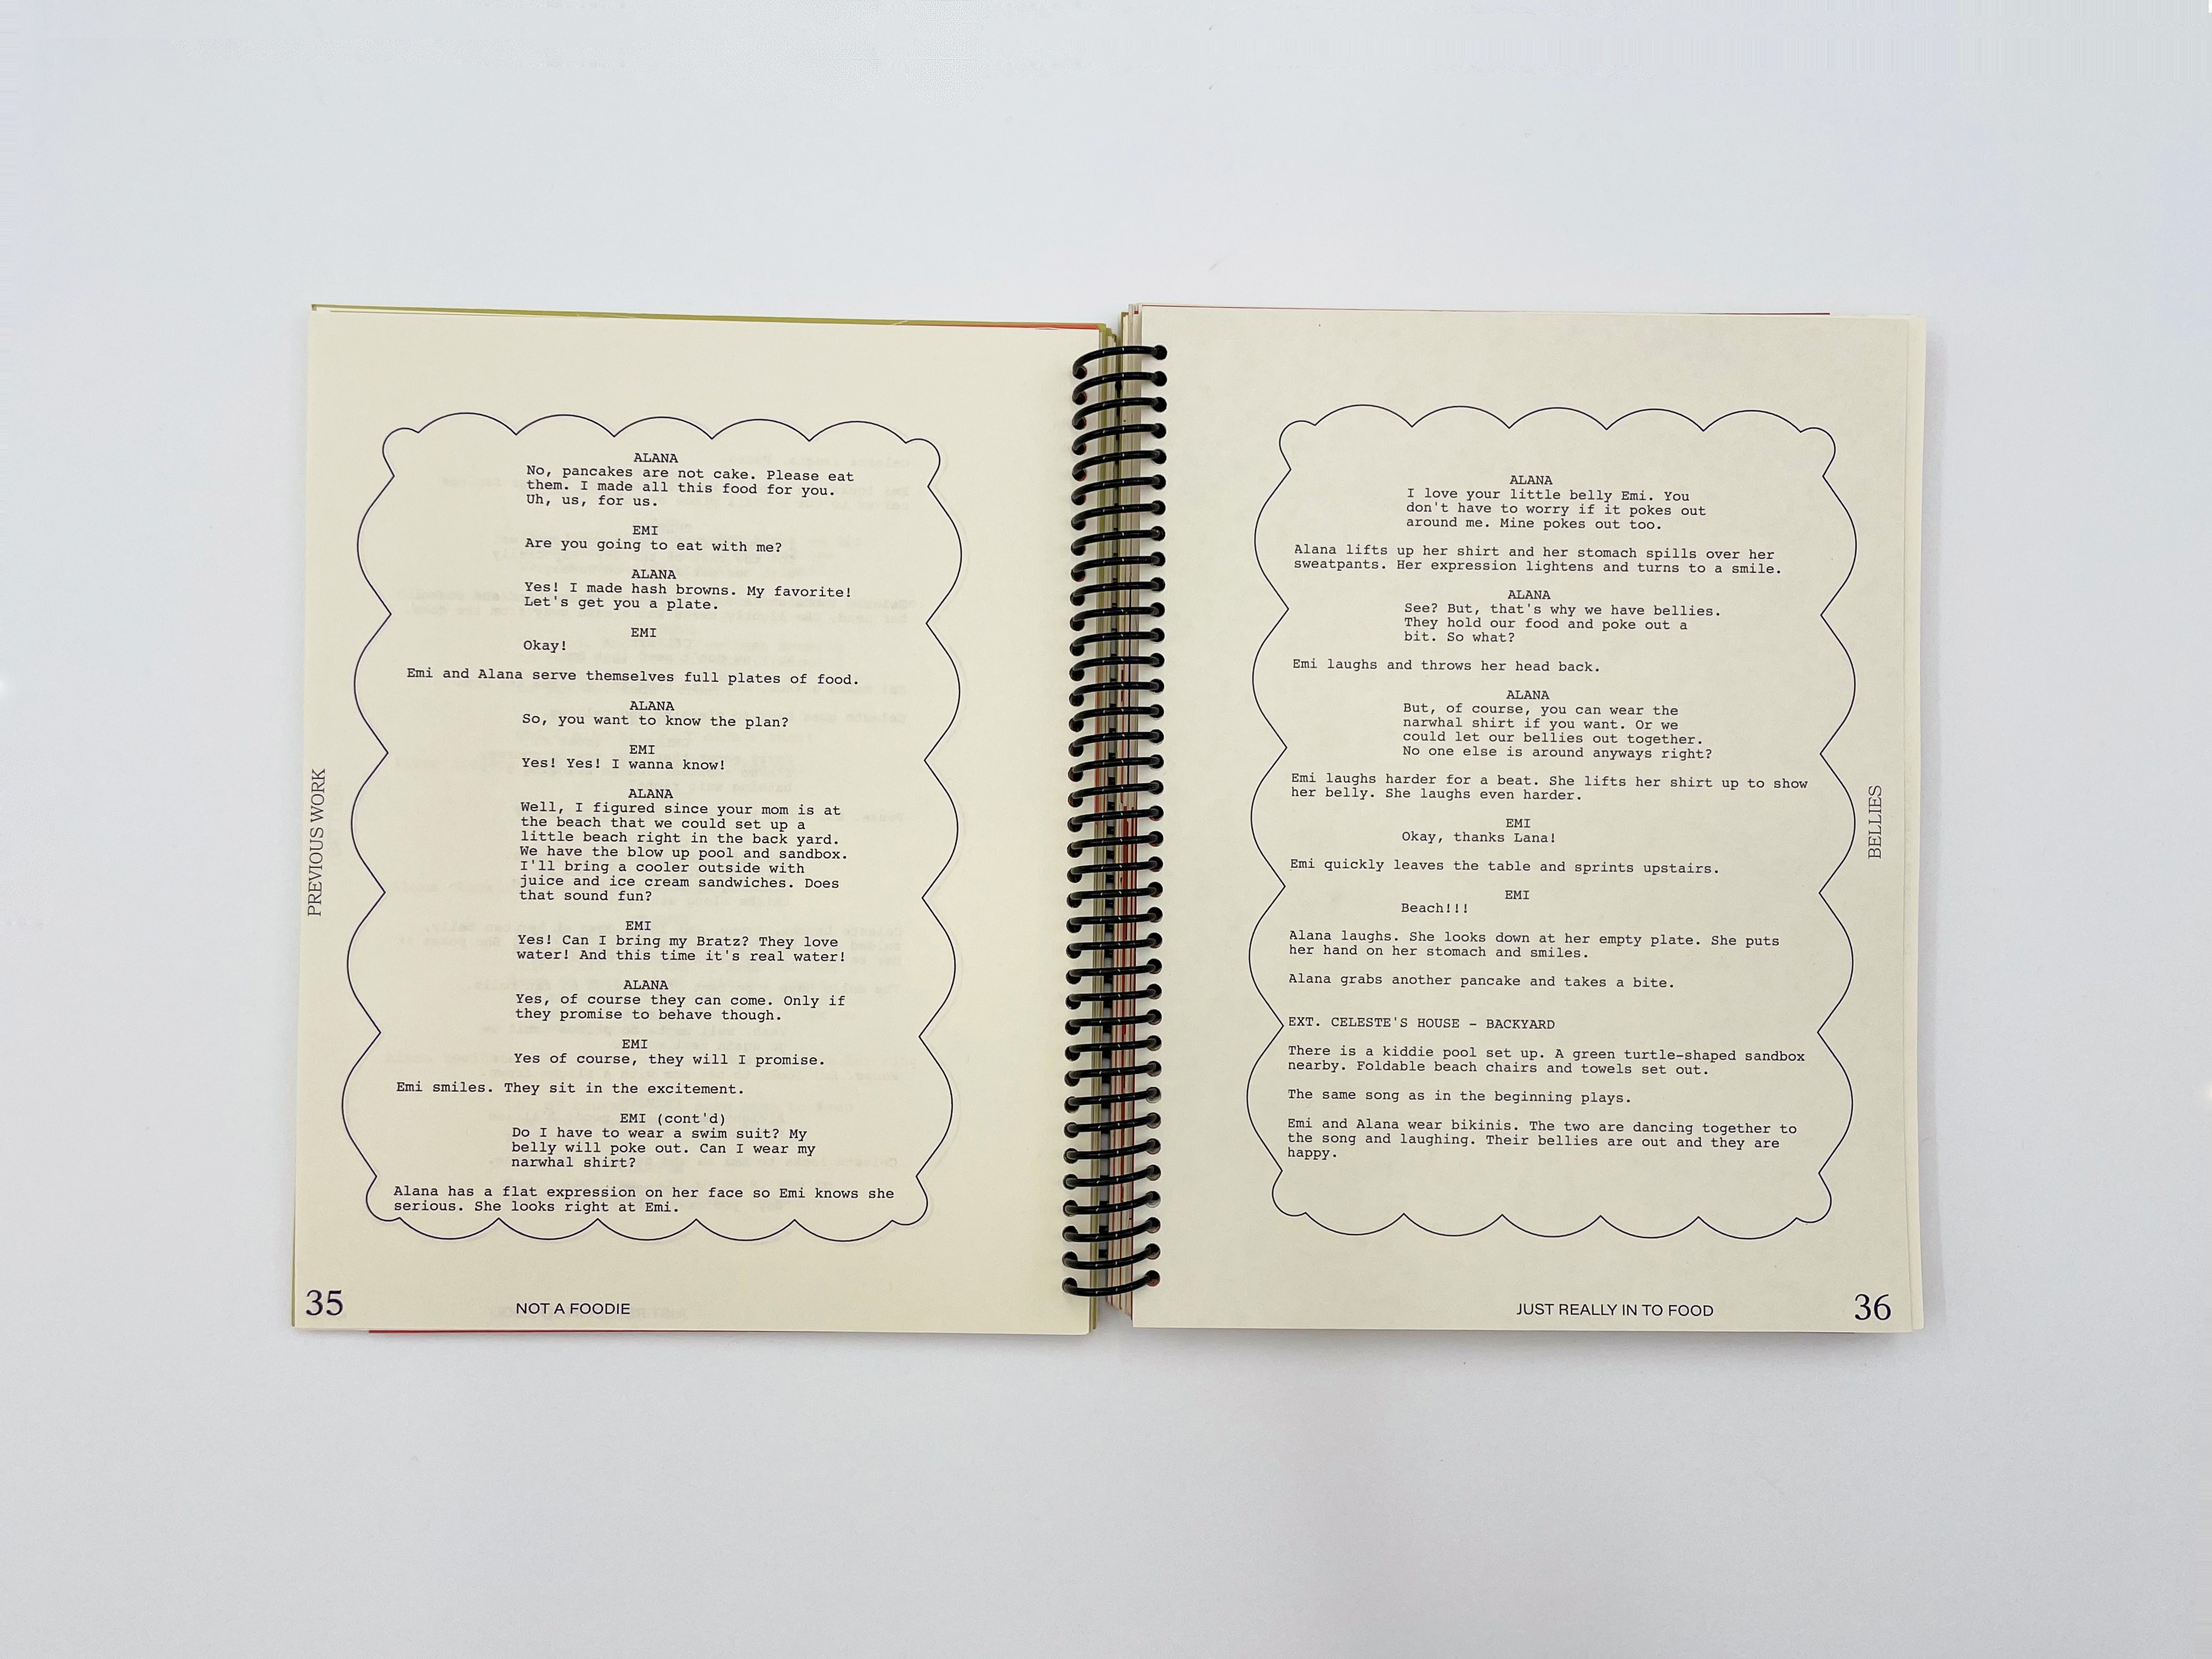 ALANA
No, pancakes are not cake. Please eat
them. I made all this food for you.
Uh, us, for us.
EMI
Are you going to eat with me?
ALANA
Yes! I made hash browns. My favorite!
Let's get you a plate.
EMI
Okay!
Emi and Alana serve themselves full plates of food.
ALANA
So, you want to know the plan?
EMI
Yes! Yes! I wanna know!
ALANA
Well, I figured since your mom is at
the beach that we could set up a
little beach right in the back yard.
We have the blow up pool and sandbox.
I'll bring a cooler outside with
juice and ice cream sandwiches. Does
that sound fun?
EMI
Yes! Can I bring my Bratz? They love
water! And this time it's real water!
ALANA
Yes, of course they can come. Only if
they promise to behave though.
EMI
Yes of course, they will I promise.
Emi smiles. They sit in the excitement.
EMI (cont'd)
Do I have to wear a swim suit? My
belly will poke out. Can I wear my
narwhal shirt?
Alana has a flat expression on her face so Emi knows she
serious. She looks right at Emi.
PREVIOUS WORK
35
NOT A FOODIE
ALANA
I love your little belly Emi. You
don't have to worry if it pokes out
around me. Mine pokes out too.
Alana lifts up her shirt and her stomach spills over her
sweatpants. Her expression lightens and turns to a smile.
ALANA
See? But, that's why we have bellies.
They hold our food and poke out a
bit. So what?
Emi laughs and throws her head back.
ALANA
But, of course, you can wear the
narwhal shirt if you want. Or we
could let our bellies out together.
No one else is around anyways right?
Emi laughs harder for a beat. She lifts her shirt up to show
her belly. She laughs even harder.
EMI
Okay, thanks Lana!
Emi quickly leaves the table and sprints upstairs.
EMI
Beach!!!
Alana laughs. She looks down at her empty plate. She puts
her hand on her stomach and smiles.
Alana grabs another pancake and takes a bite.
EXT. CELESTE'S HOUSE - BACKYARD
There is a kiddie pool set up. A green turtle-shaped sandbox
nearby. Foldable beach chairs and towels set out.
The same song as in the beginning plays.
Emi and Alana wear bikinis. The two are dancing together to
the song and laughing. Their bellies are out and they are
happy.
BELLIES
JUST REALLY IN TO FOOD
36